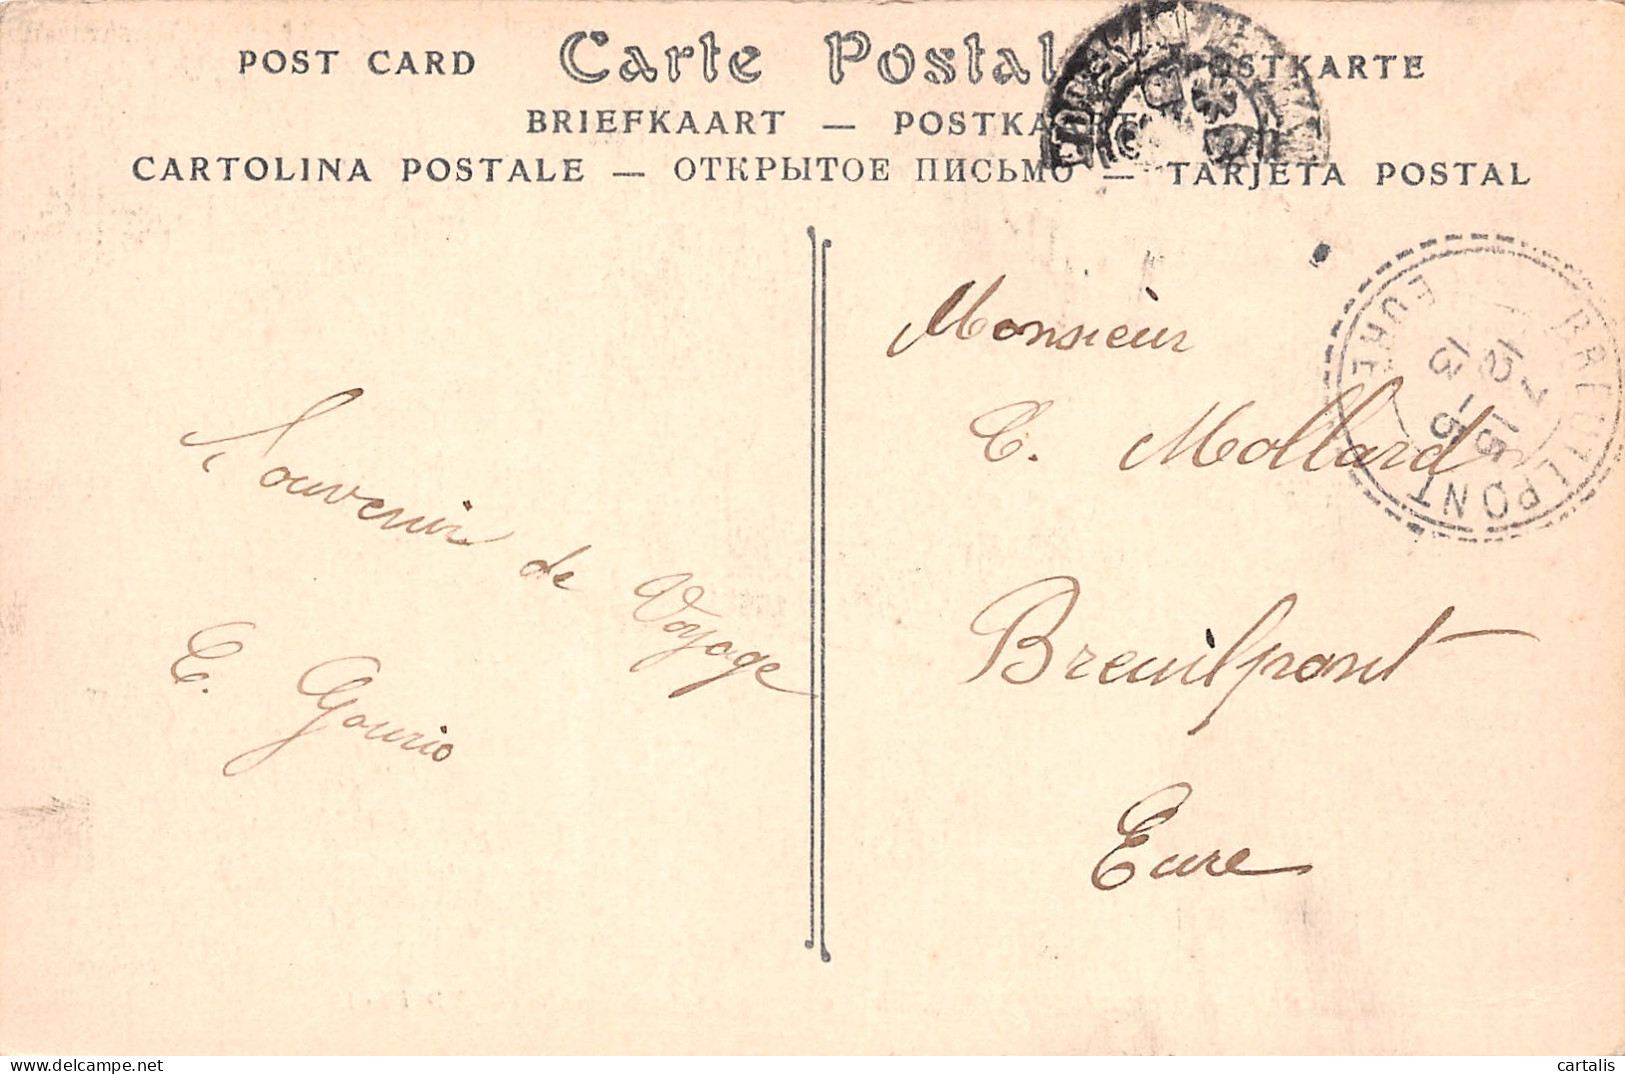 POST CARD Carte Postale POSTKARTE
BRIEFKAART — POSTKAART
CARTOLINA POSTALE — ОТКРЫТОЕ ПИСЬМО — TARJETA POSTAL
Souvenir de Voyage
E. Gourio
Monsieur
E. Mollard
Breuilpont
Eure
BREUILPONT
EURE
7 15
12 -5
13
cartalis